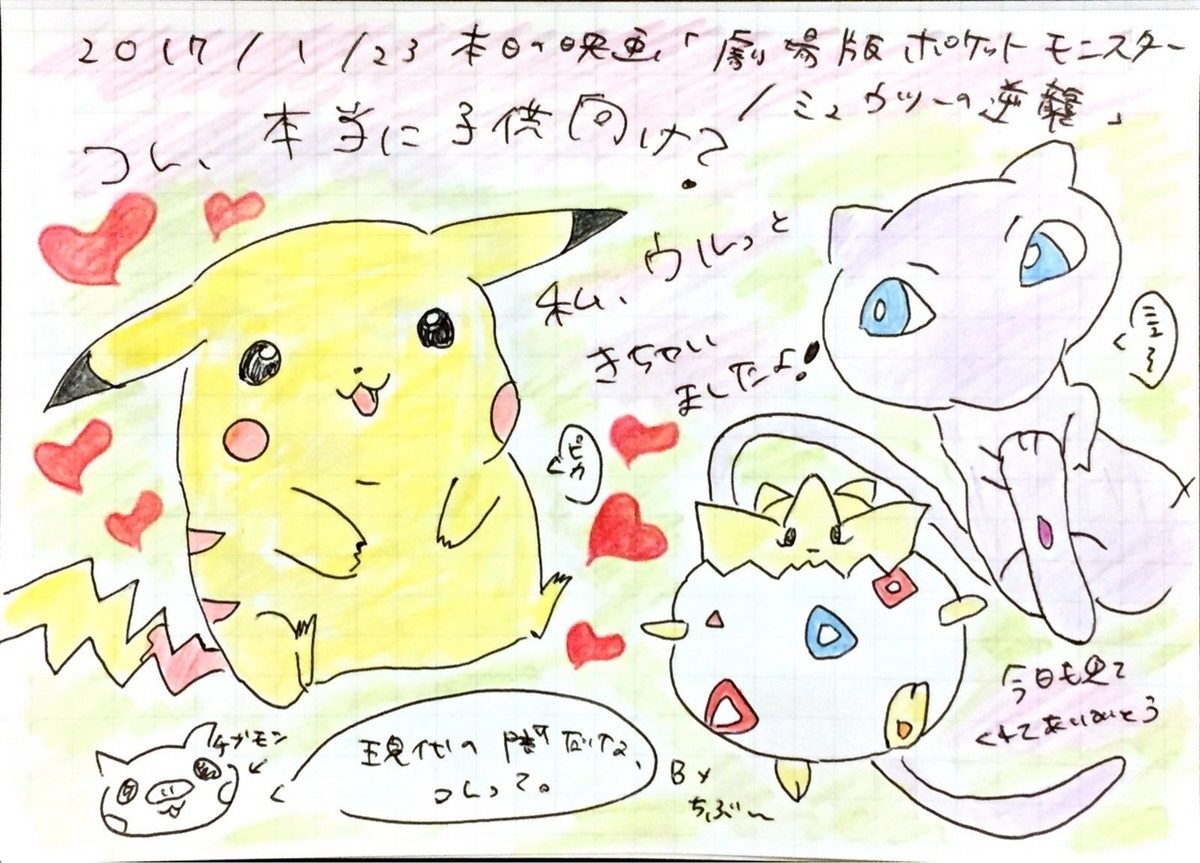 2017/1/23 本日の映画「劇場版 ポケットモンスター
/ミュウツーの逆襲」
コレ、本当に子供向け?
私、ウルっと
きちゃい
ましたよ!
ミュー
ピカ
今日も見て
くれてありがとう
チブモン
現代の闇だよな、
コレって。
By
ちぶ〜